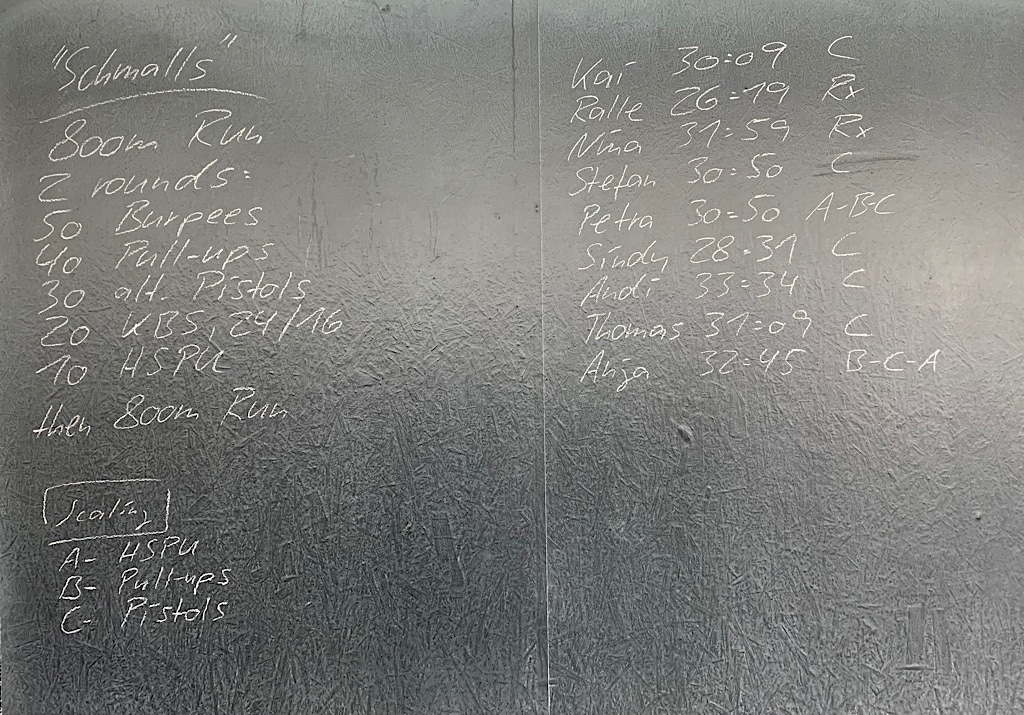 "Schmalls"
800m Run
2 rounds:
50 Burpees
40 Pull-ups
30 alt. Pistols
20 KBS, 24/16
10 HSPU
then 800m Run
Scaling
A- HSPU
B- Pull-ups
C- Pistols
Kai 30:09 C
Ralle 26:19 Rx
Nina 31:59 Rx
Stefan 30:50 C
Petra 30:50 A-BC
Sindy 28:31 C
Andi 33:34 C
Thomas 31:09 C
Anja 32:45 B-C-A